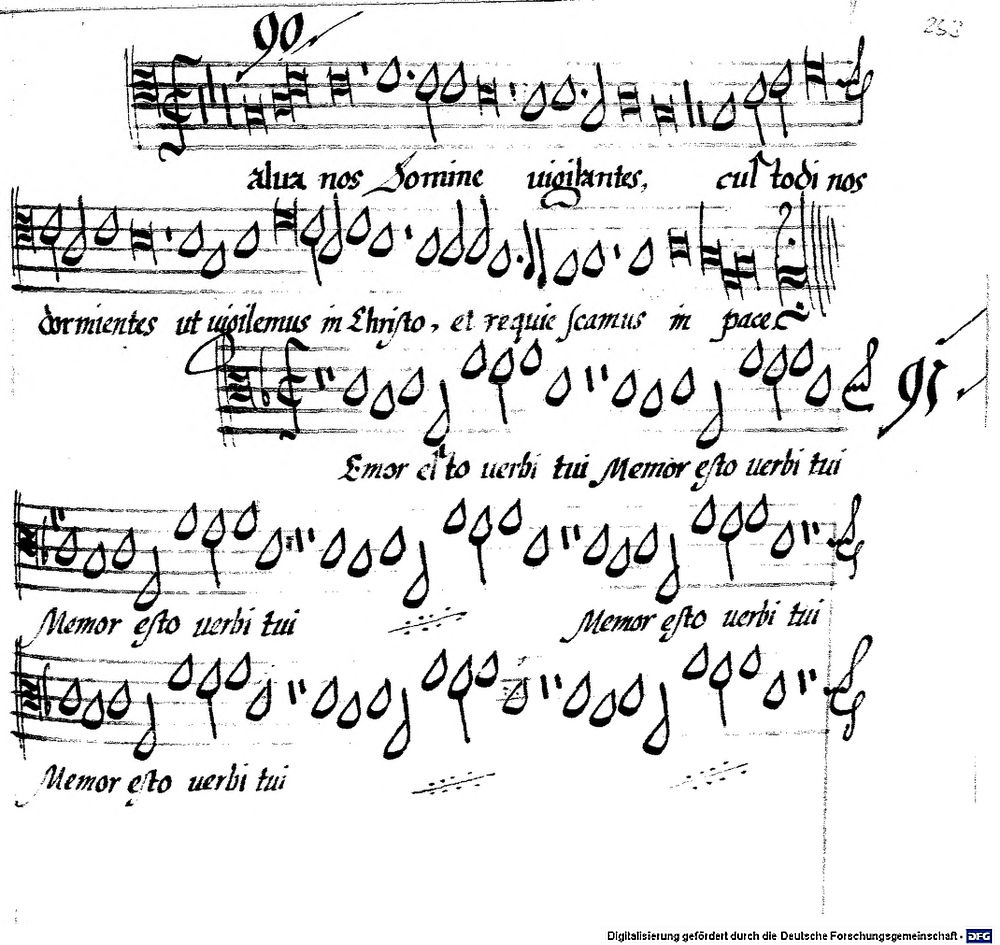 90
253
alua nos Domine uigilantes, custodi nos
dormientes ut uigilemus in Christo, et requiescamus in pace
91
Emor esto uerbi tui Memor esto uerbi tui
Memor esto uerbi tui Memor esto uerbi tui
Memor esto uerbi tui
Digitalisierung gefördert durch die Deutsche Forschungsgemeinschaft - DFG